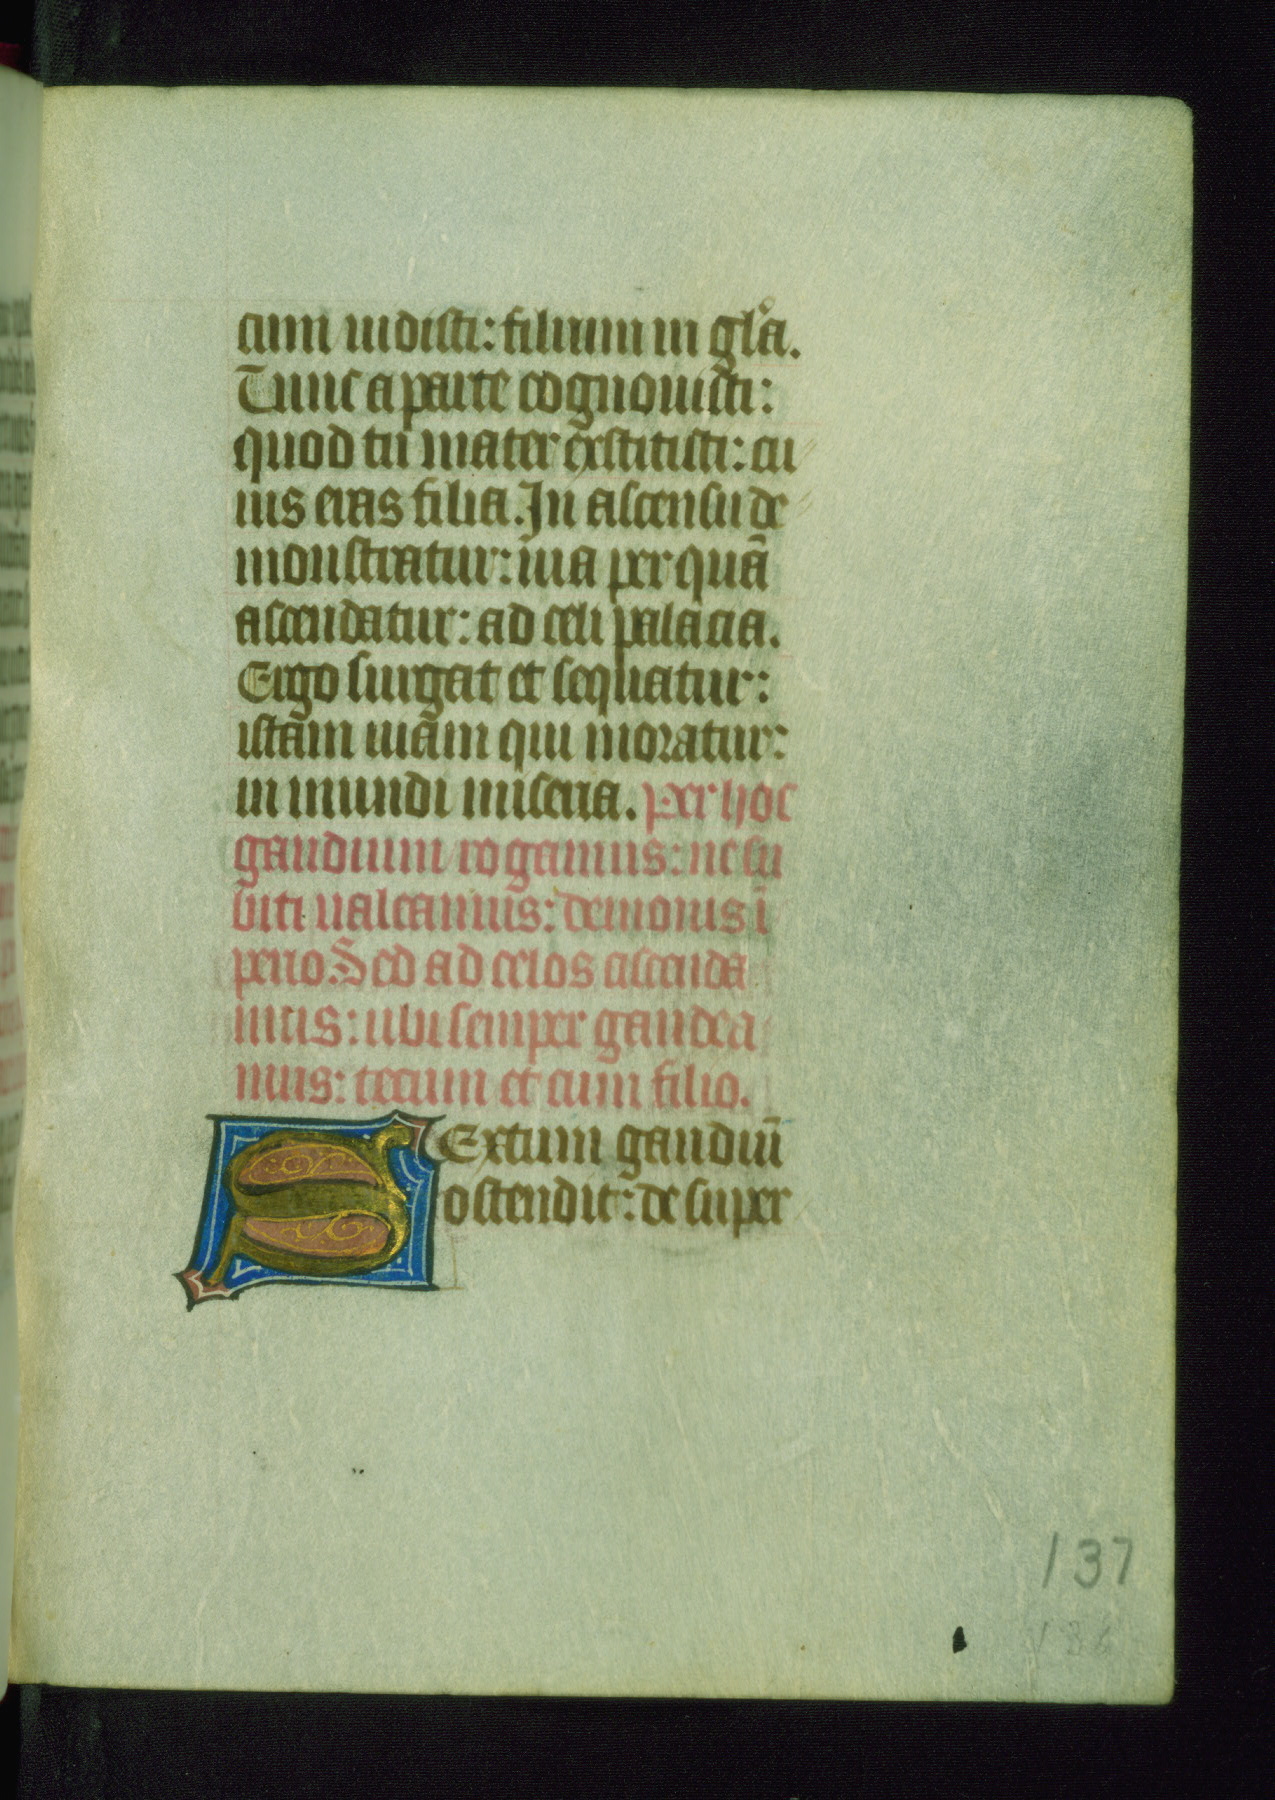 cum uidisti: filium in gl̉a.
Tunc a parte cognouisti:
quod tu mater exstitisti: cu
ius eras filia. In ascensu de
monstratur: uia per quā
ascendatur: ad celi palacia.
Ergo surgat et sequatur:
istam uiam qui moratur:
in mundi miseria. Per hoc
gaudium rogamus: ne su
biti ualeamus: demonis ī
perio. Sed ad celos ascenda
mus: ubi semper gaudea
mus: tecum et cum filio.
Sextum gaudiū
ostendit: de super
137
136